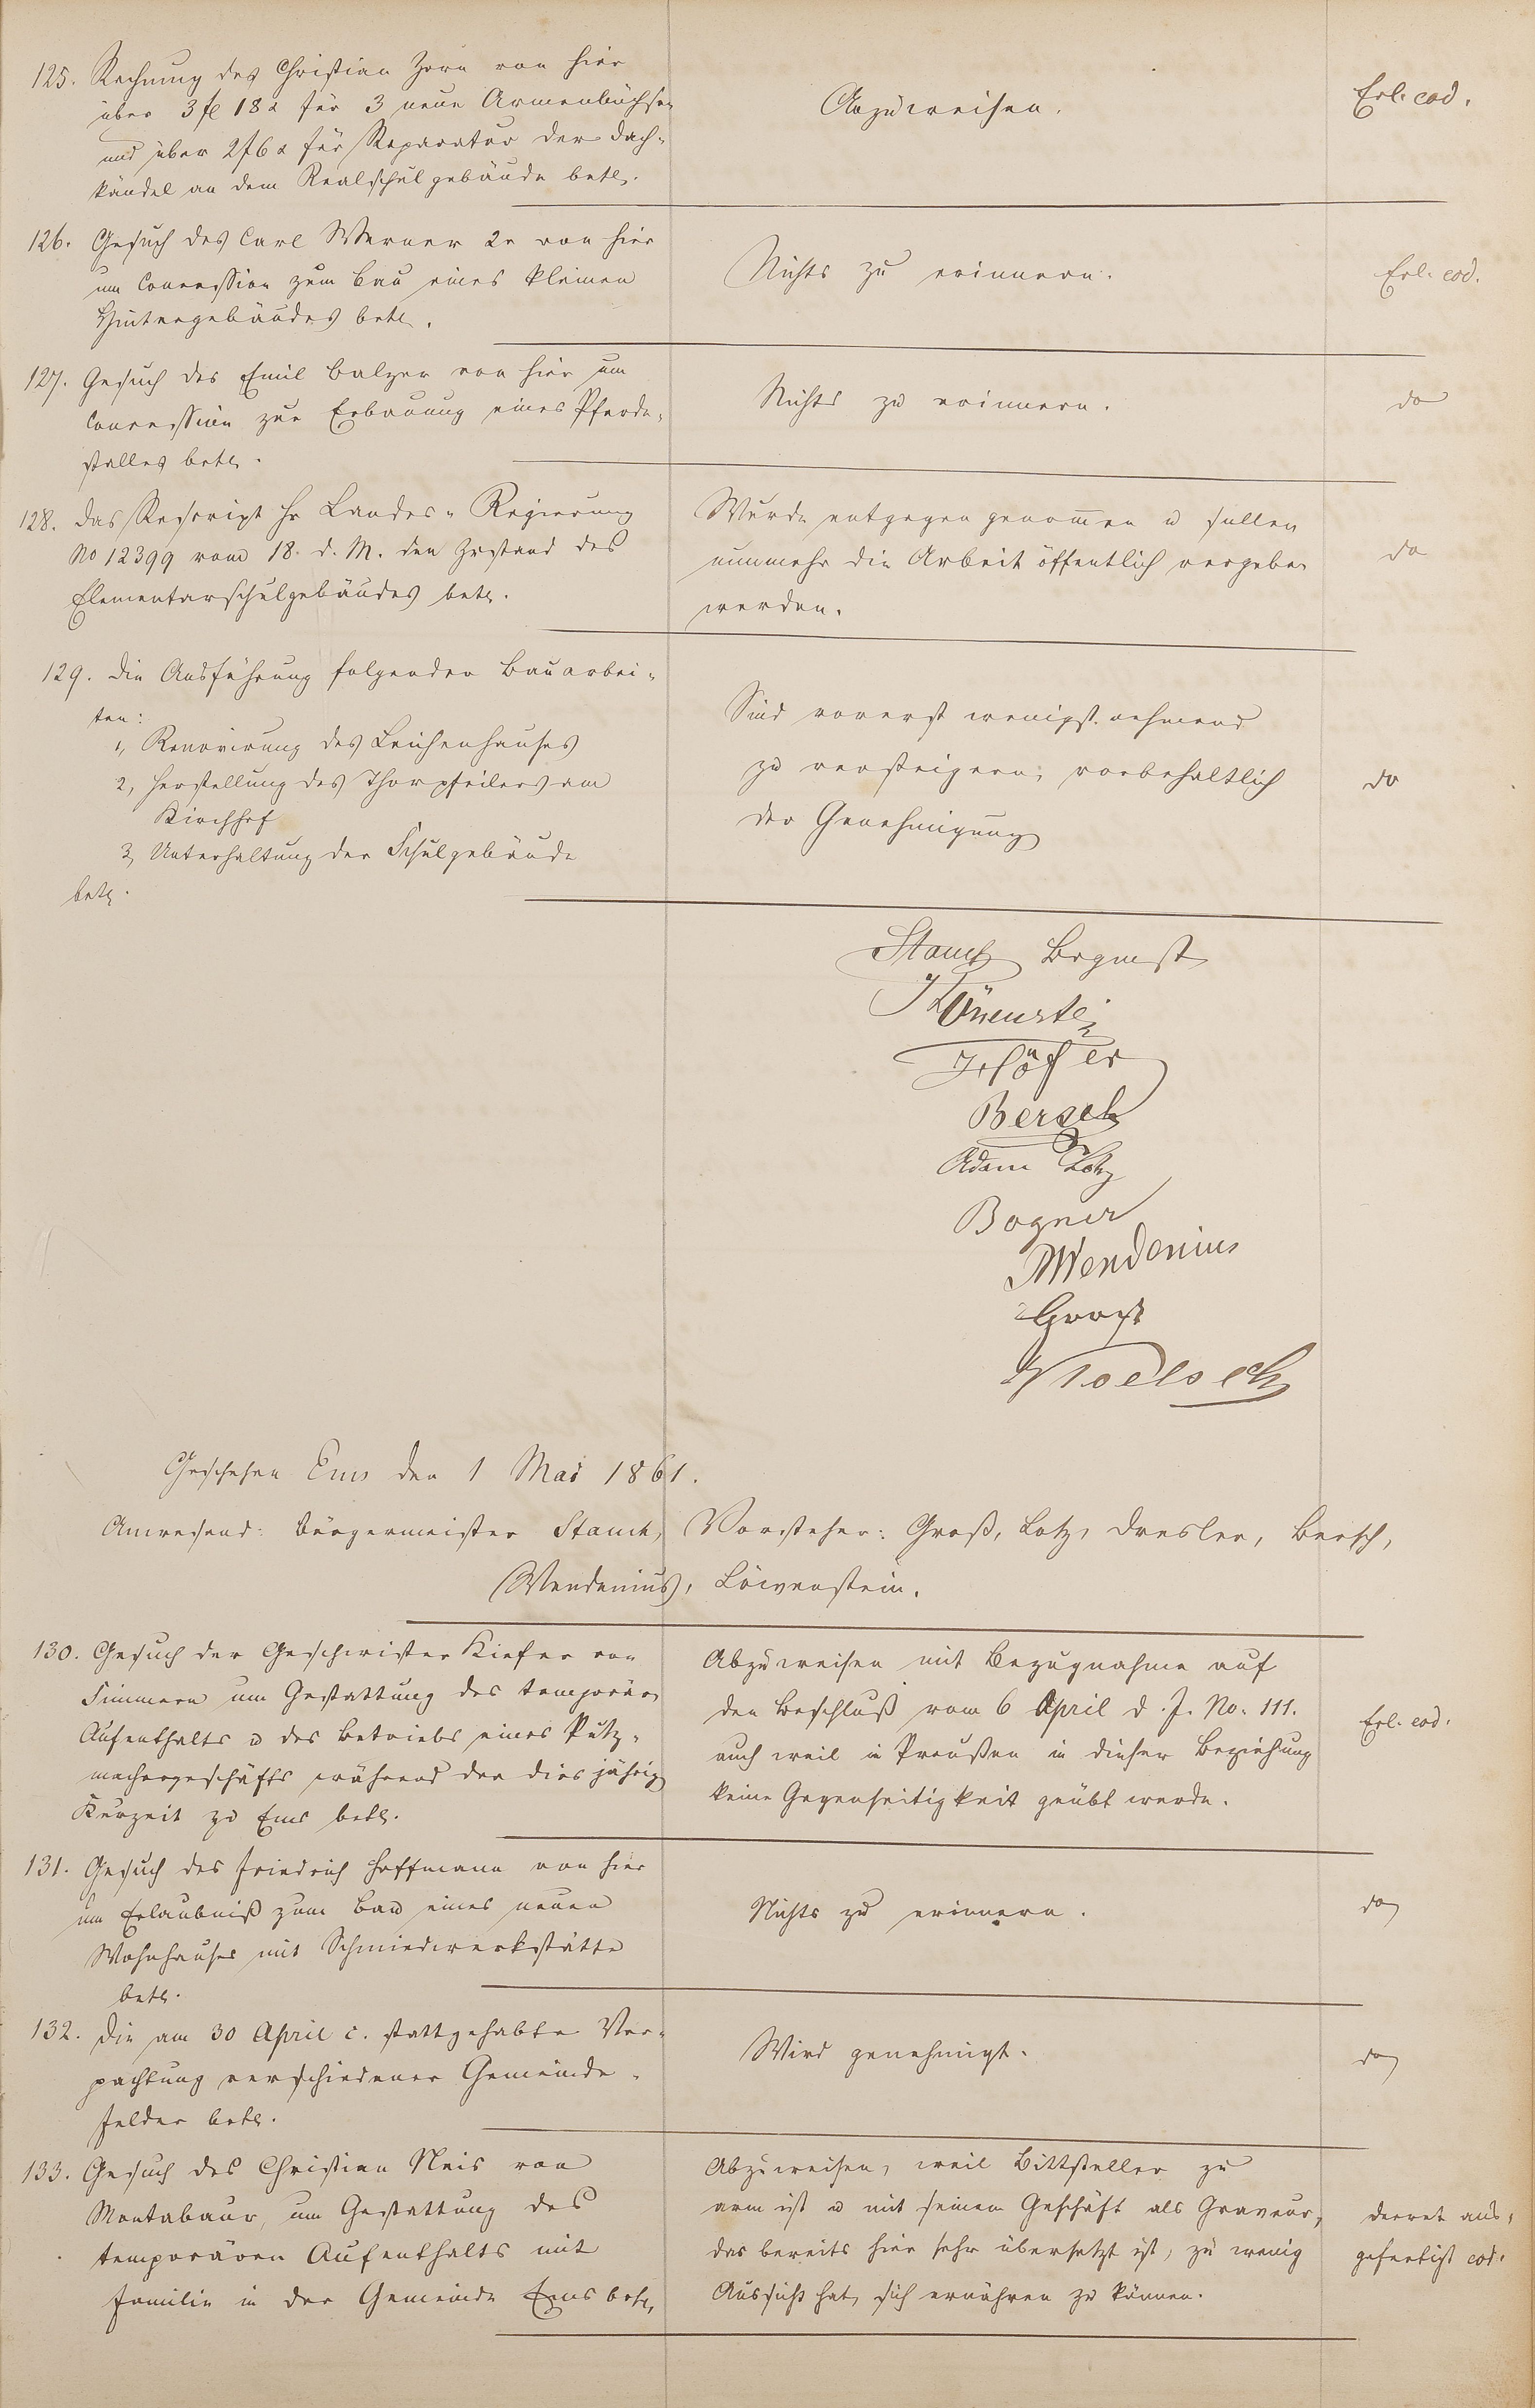 125. Rechnung des Christian Zorn von hier
über 3 fl 18 x für 3 neue Armenbüchsen
und über 2 f 6 x für Reparatur der Dach-
kändel an dem Realschulgebäude betr.
Abzuweisen.
Erl. eod.
126. Gesuch des Carl Werner 2r von hier
um Concession zum Bau eines kleinen
Hintergebäudes betr.
Nichts zu erinnern.
Erl. eod.
127. Gesuch des Emil Balzer von hier um
Concession zur Erbauung eines Pferde-
stalles betr.
Nichts zu erinnern.
do
128. Das Rescript Hr Landes-Regierung
No 12399 vom 18. d. M. den Zustand des
Elementarschulgebäudes betr.
Wurde entgegen genommen u sollen
nunmehr die Arbeit öffentlich vergeben
werden.
do
129. Die Ausführung folgender Bauarbei-
ten:
1, Renovirung des Leichenhauses
2, Herstellung des Thorpfeilers am
Kirchhof
3, Unterhaltung der Schulgebäude
betr.
Sind vorerst wenigst. nehmend
zu versteigern, vorbehaltlich
der Genehmigung
do
Stauch Brgmst
Löwenstein
Höfer
Bersch
Adam Lotz
Bogner
Wendenius
Groß
Geschehen Ems den 1 Mai 1861.
Anwesend: Bürgermeister Stauch, Vorsteher: Groß, Lotz, Dresler, Bersch,
Wendenius, Löwenstein.
130. Gesuch der Geschwister Kiefer von
Simmern um Gestattung des temporären
Aufenthalts u des Betriebs eines Putz-
machergeschäfts während der diesjährig
Kurzeit zu Ems betr.
Abzuweisen mit Bezugnahme auf
den Beschluß vom 6 April d. J. No. 111.
auch weil in Preußen in dieser Beziehung
keine Gegenseitigkeit geübt werde.
Erl. eod.
131. Gesuch des Friedrich Hoffmann von hier
um Erlaubniß zum Bau eines neuen
Wohnhauses mit Schmiedwerkstätte
betr.
Nichts zu erinnern.
do
132. Die am 30 April c. stattgehabte Ver-
pachtung verschiedener Gemeinde-
felder betr.
Wird genehmigt.
do
133. Gesuch des Christian Neis von
Montabaur, um Gestattung des
temporären Aufenthalts mit
Familie in der Gemeinde Ems betr.
Abzuweisen, weil Bittsteller zu
arm ist u mit seinem Geschäft als Graveur,
das bereits hier sehr übersetzt ist, zu wenig
Aussicht hat, sich ernähren zu können.
Decret aus-
gefertigt eod.